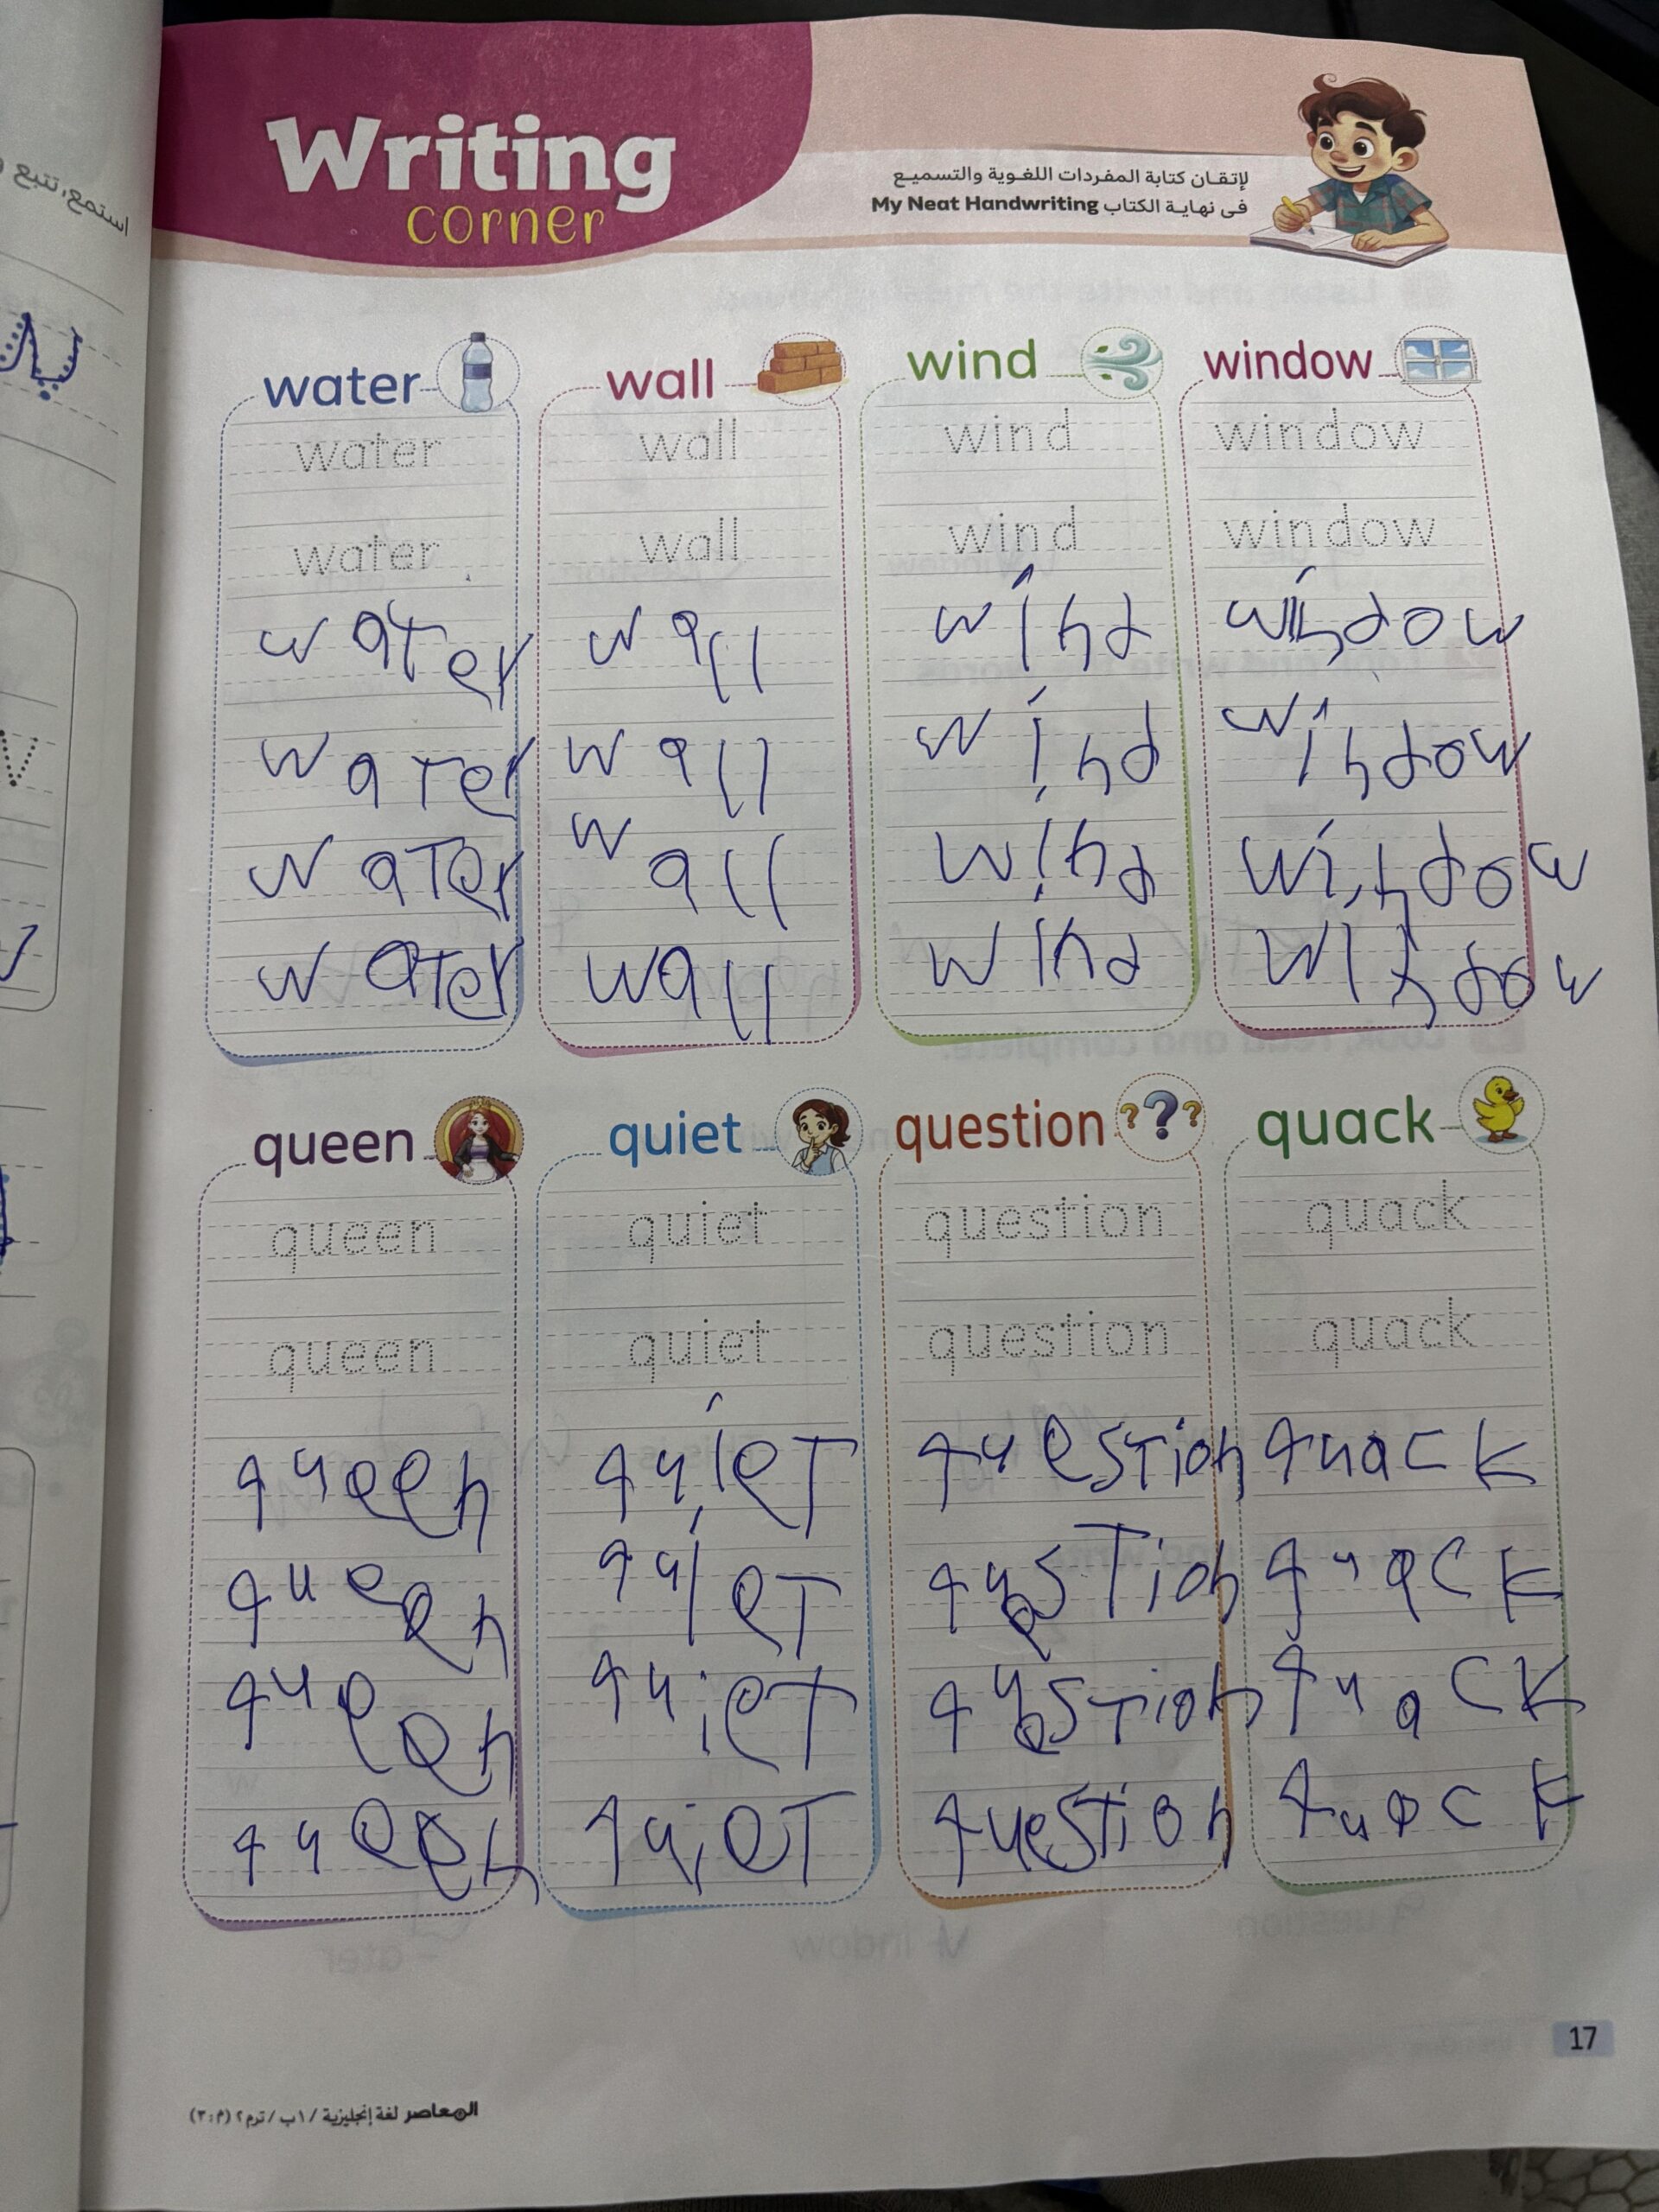 Writing
corner
لإتقـان كتابة المفـردات اللغـوية والتسميـع
فى نهايـة الكتاب My Neat Handwriting
استمع، تتبع
water wall wind window
water wall wind window
water wall wind window
water wall wind window
water wall wind window
water wall wind window
water wall wind window
queen quiet question ??? quack
queen quiet question quack
queen quiet question quack
queen quiet question quack
queen quiet question quack
queen quiet question quack
queen quiet question quack
17
المعاصر لغة إنجليزية / ١ ب / ترم ٢ (م : ٣)